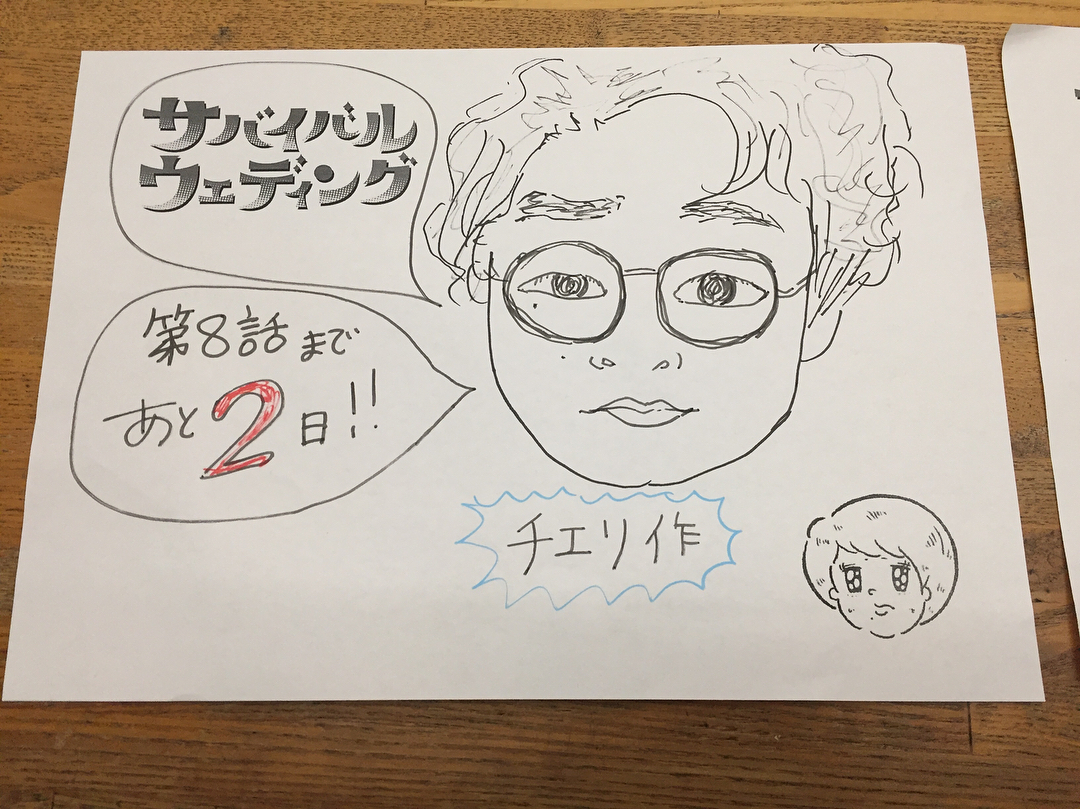 サバイバル
ウェディング
第8話まで
あと2日!!
チェリ作